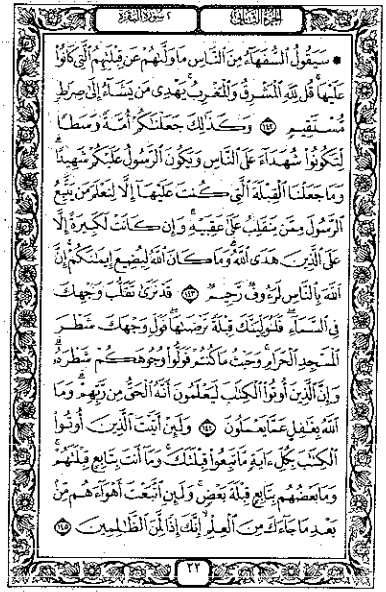 الجزء الثاني
٢ سورة البقرة
سَيَقُولُ ٱلسُّفَهَآءُ مِنَ ٱلنَّاسِ مَا وَلَّىٰهُمْ عَن قِبْلَتِهِمُ ٱلَّتِى كَانُوا۟
عَلَيْهَا ۚ قُل لِّلَّهِ ٱلْمَشْرِقُ وَٱلْمَغْرِبُ ۚ يَهْدِى مَن يَشَآءُ إِلَىٰ صِرَٰطٍ
مُّسْتَقِيمٍ ١٤٢ وَكَذَٰلِكَ جَعَلْنَٰكُمْ أُمَّةً وَسَطًا
لِّتَكُونُوا۟ شُهَدَآءَ عَلَى ٱلنَّاسِ وَيَكُونَ ٱلرَّسُولُ عَلَيْكُمْ شَهِيدًا ۗ
وَمَا جَعَلْنَا ٱلْقِبْلَةَ ٱلَّتِى كُنتَ عَلَيْهَآ إِلَّا لِنَعْلَمَ مَن يَتَّبِعُ
ٱلرَّسُولَ مِمَّن يَنقَلِبُ عَلَىٰ عَقِبَيْهِ ۚ وَإِن كَانَتْ لَكَبِيرَةً إِلَّا
عَلَى ٱلَّذِينَ هَدَى ٱللَّهُ ۗ وَمَا كَانَ ٱللَّهُ لِيُضِيعَ إِيمَٰنَكُمْ ۚ إِنَّ
ٱللَّهَ بِٱلنَّاسِ لَرَءُوفٌ رَّحِيمٌ ١٤٣ قَدْ نَرَىٰ تَقَلُّبَ وَجْهِكَ
فِى ٱلسَّمَآءِ ۖ فَلَنُوَلِّيَنَّكَ قِبْلَةً تَرْضَىٰهَا ۚ فَوَلِّ وَجْهَكَ شَطْرَ
ٱلْمَسْجِدِ ٱلْحَرَامِ ۚ وَحَيْثُ مَا كُنتُمْ فَوَلُّوا۟ وُجُوهَكُمْ شَطْرَهُۥ ۗ
وَإِنَّ ٱلَّذِينَ أُوتُوا۟ ٱلْكِتَٰبَ لَيَعْلَمُونَ أَنَّهُ ٱلْحَقُّ مِن رَّبِّهِمْ ۗ وَمَا
ٱللَّهُ بِغَٰفِلٍ عَمَّا يَعْمَلُونَ ١٤٤ وَلَئِنْ أَتَيْتَ ٱلَّذِينَ أُوتُوا۟
ٱلْكِتَٰبَ بِكُلِّ ءَايَةٍ مَّا تَبِعُوا۟ قِبْلَتَكَ ۚ وَمَآ أَنتَ بِتَابِعٍ قِبْلَتَهُمْ ۚ
وَمَا بَعْضُهُم بِتَابِعٍ قِبْلَةَ بَعْضٍ ۚ وَلَئِنِ ٱتَّبَعْتَ أَهْوَآءَهُم مِّنۢ
بَعْدِ مَا جَآءَكَ مِنَ ٱلْعِلْمِ ۙ إِنَّكَ إِذًا لَّمِنَ ٱلظَّٰلِمِينَ ١٤٥
٢٢